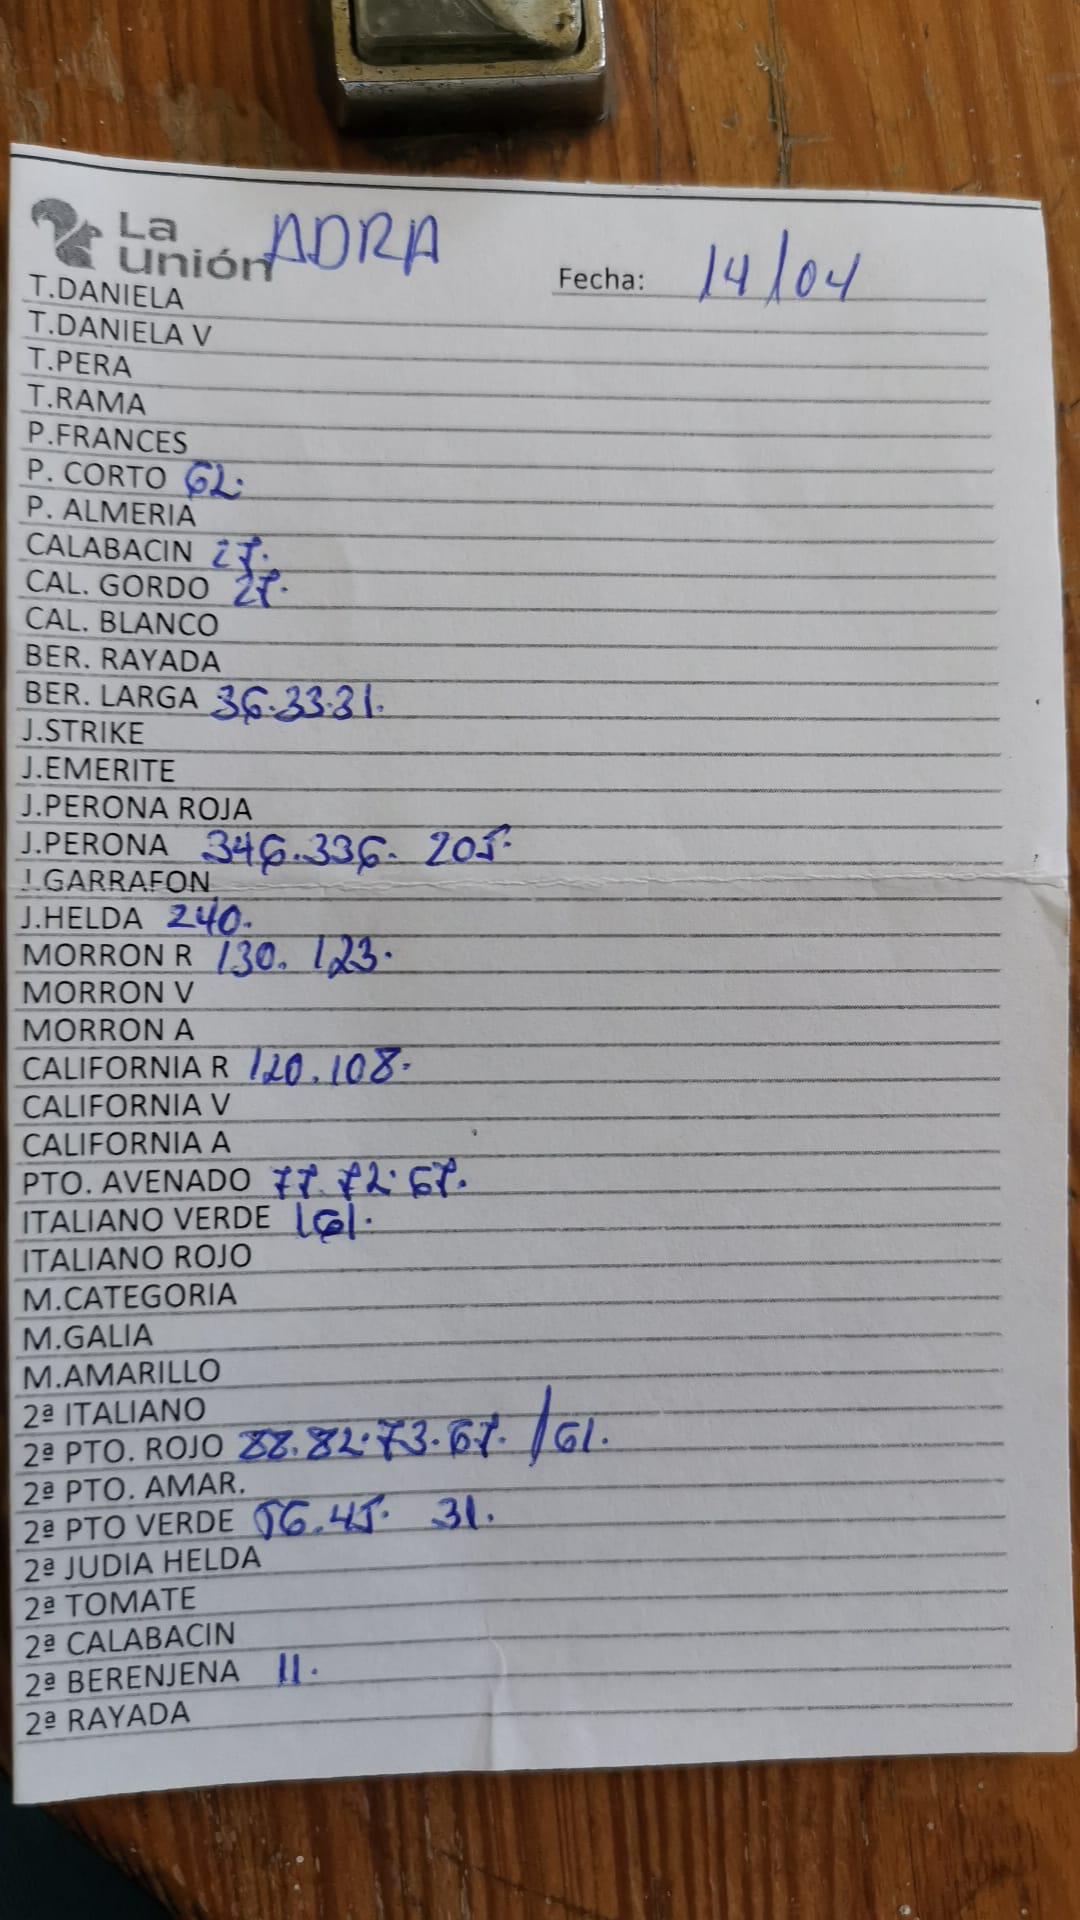 La
Unión ADRA
Fecha: 14/04
T.DANIELA
T.DANIELA V
T.PERA
T.RAMA
P.FRANCES
P. CORTO 62.
P. ALMERIA
CALABACIN 27.
CAL. GORDO 27.
CAL. BLANCO
BER. RAYADA
BER. LARGA 36.33.31.
J.STRIKE
J.EMERITE
J.PERONA ROJA
J.PERONA 346.336. 205.
J.GARRAFON
J.HELDA 240.
MORRON R 130. 123.
MORRON V
MORRON A
CALIFORNIA R 120.108.
CALIFORNIA V
CALIFORNIA A
PTO. AVENADO 77.72.67.
ITALIANO VERDE 161.
ITALIANO ROJO
M.CATEGORIA
M.GALIA
M.AMARILLO
2ª ITALIANO
2ª PTO. ROJO 88.82.73.67. /61.
2ª PTO. AMAR.
2ª PTO VERDE 56.45. 31.
2ª JUDIA HELDA
2ª TOMATE
2ª CALABACIN
2ª BERENJENA 11.
2ª RAYADA